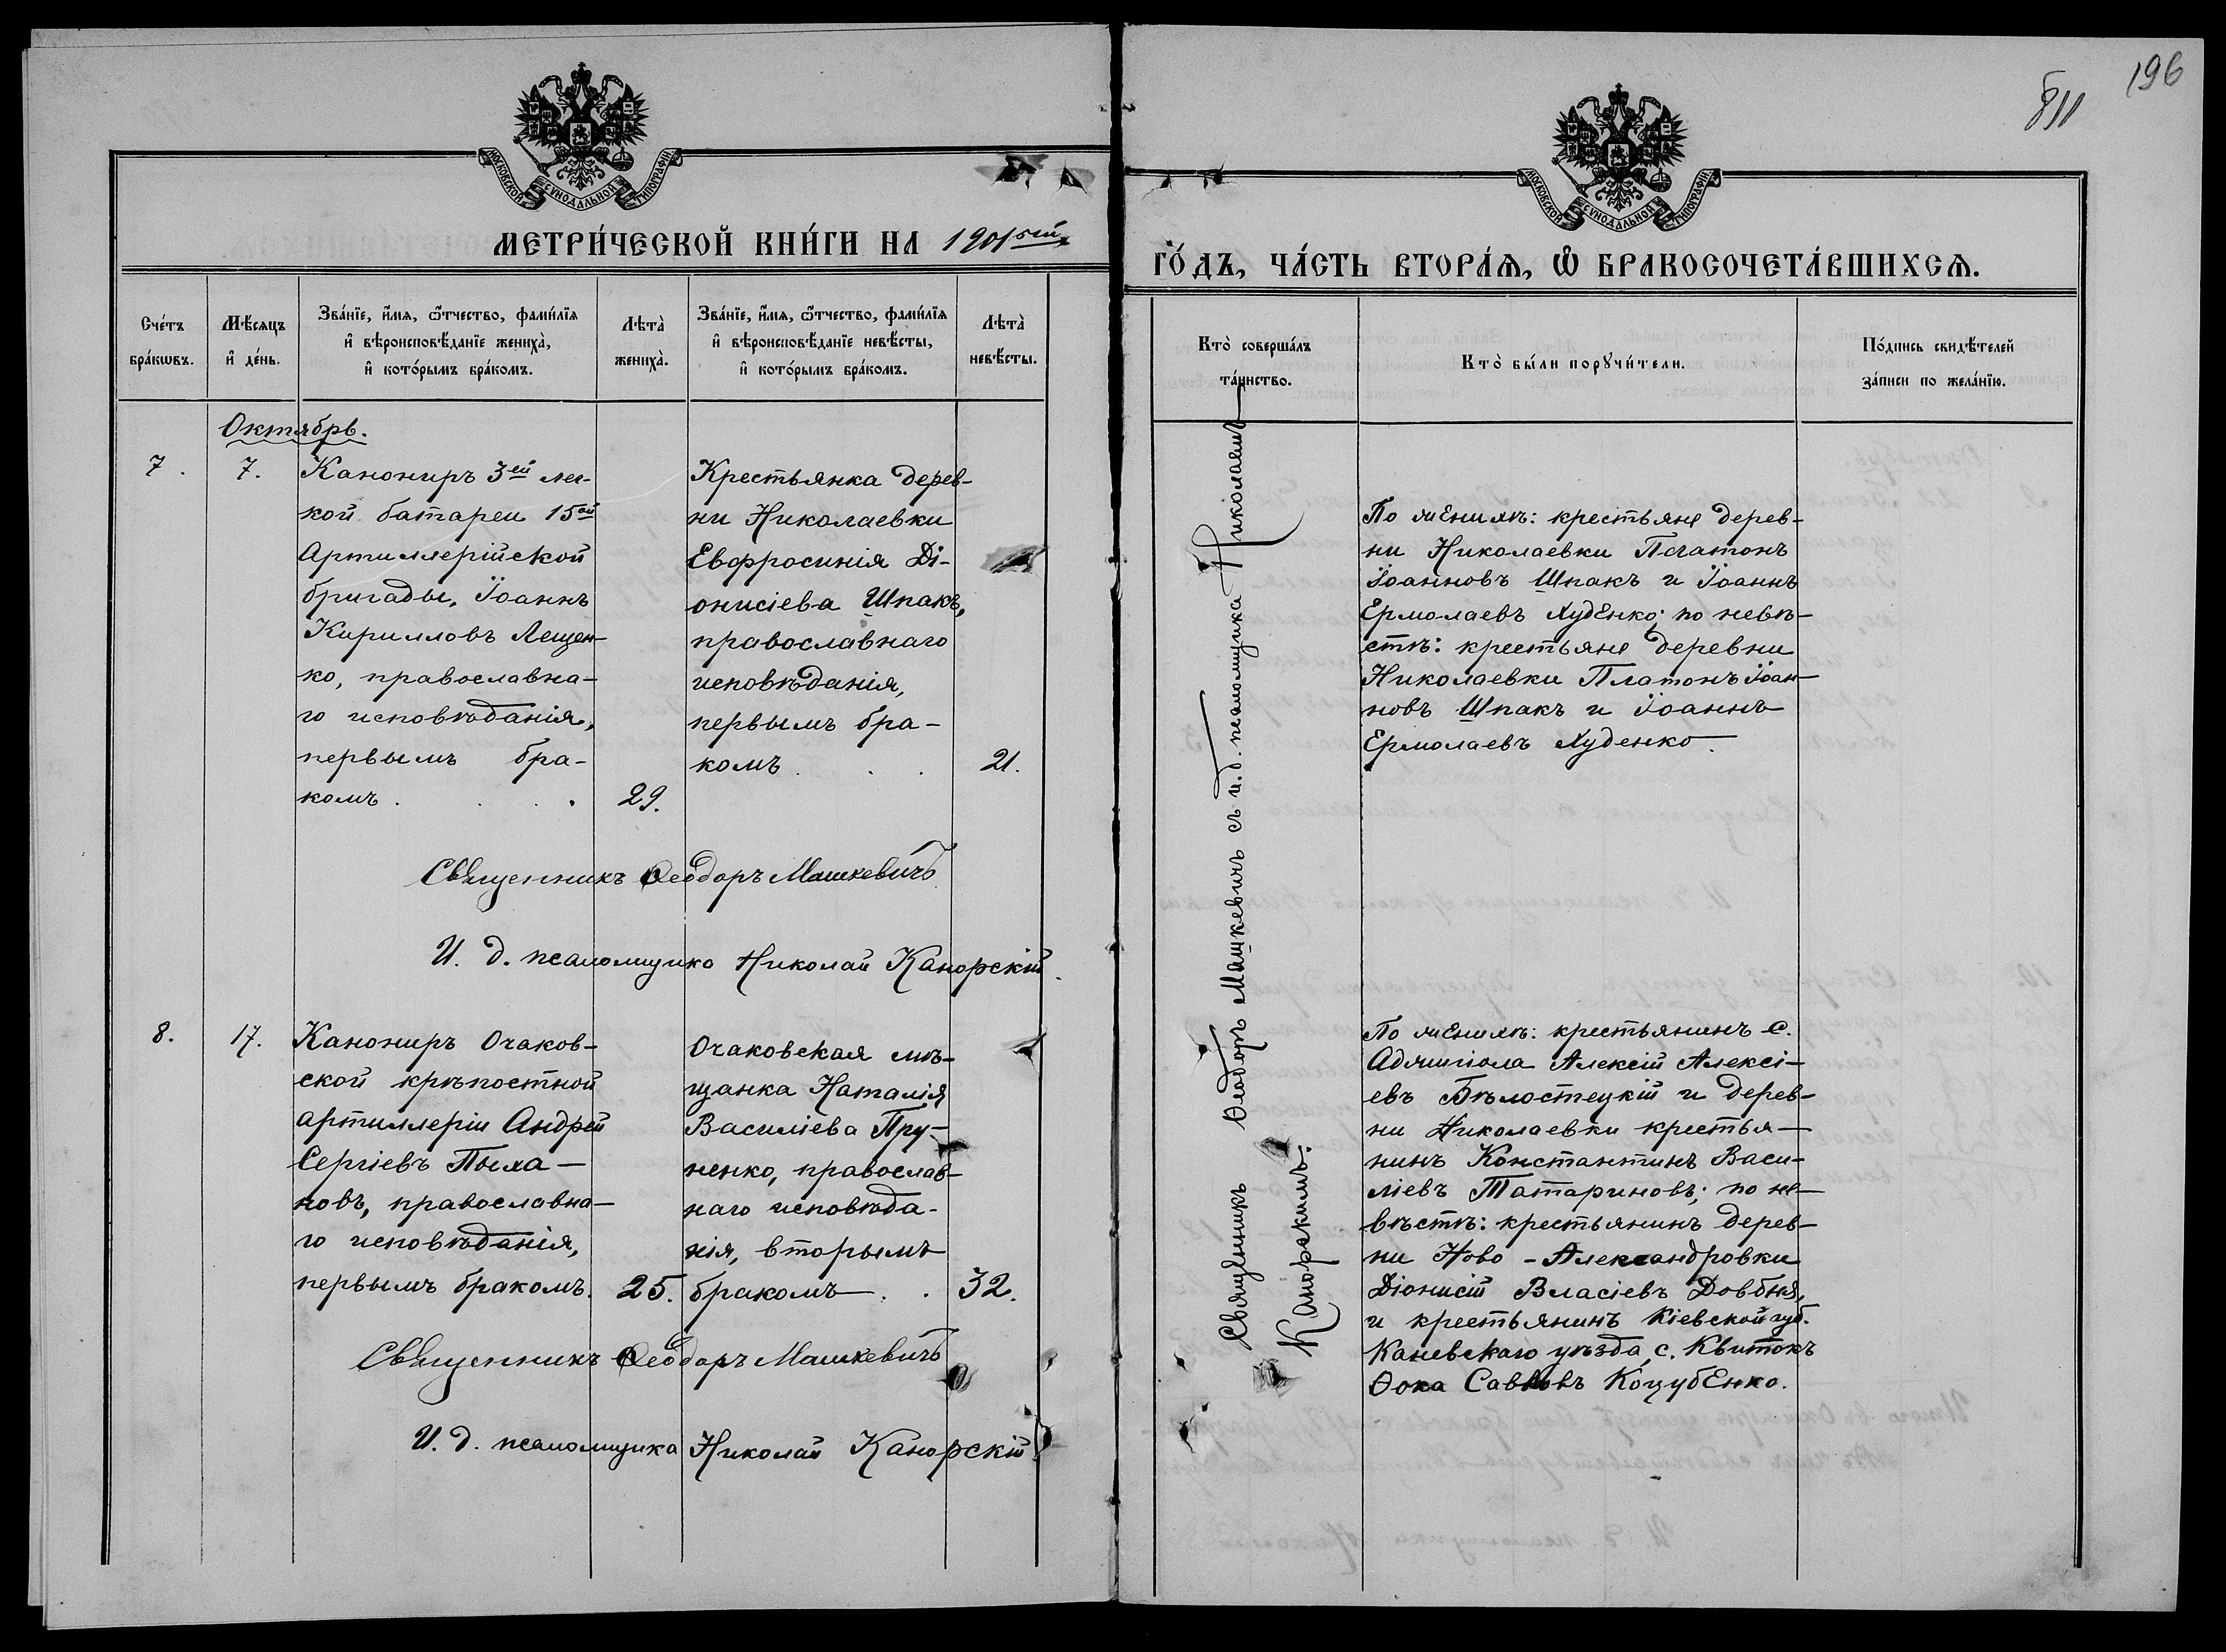 196
811
МОСКОВСКОЙ СѴНОДАЛЬНОЙ ТИПОГРАФІИ
МЕТРИ́ЧЕСКОЙ КНИ́ГИ НА 1901ый
Сче́тъ бра́кѡвъ.
Мѣ́сяцъ и҆ де́нь.
Зва́нїе, и҆́мѧ, ѻ҆́тчество, фами́лїѧ
и҆ вѣроисповѣ́данїе жениха̀,
и҆ кото́рымъ бра́комъ.
Лѣта̀ жениха̀.
Зва́нїе, и҆́мѧ, ѻ҆́тчество, фами́лїѧ
и҆ вѣроисповѣ́данїе невѣ́сты,
и҆ кото́рымъ бра́комъ.
Лѣта̀ невѣ́сты.
Октябрь.
7.
7.
Канониръ 3ей лег-
кой батареи 15ой
Артиллерійской
бригады, Іоаннъ
Кирилловъ Лещен-
ко, православна-
го исповѣданія,
первымъ бра-
комъ . . .
29.
Крестьянка дерев-
ни Николаевки
Евфросинія Ді-
онисіева Шпакъ,
православнаго
исповѣданія,
первымъ бра-
комъ . . .
21.
Священникъ Ѳеодоръ Машкевичъ
И. д. псаломщика Николай Канорскій.
8.
17.
Канониръ Очаков-
ской крѣпостной
артиллеріи Андрей
Сергіевъ Пыха-
новъ, православна-
го исповѣданія,
первымъ бракомъ.
25.
Очаковская мѣ-
щанка Наталія
Василіева Пру-
ненко, православ-
наго исповѣда-
нія, вторымъ
бракомъ . .
32.
Священникъ Ѳеодоръ Машкевичъ
И. д. псаломщика Николай Канорскій
МОСКОВСКОЙ СѴНОДАЛЬНОЙ ТИПОГРАФІИ
ГО́ДЪ, ЧА́СТЬ ВТОРА́Ѧ, Ѡ҆ БРАКОСОЧЕТА́ВШИХСѦ.
Кто̀ соверша́лъ
та́инство.
Кто̀ бы́ли порꙋчи́тели.
По́дпись свидѣ́телей
за́писи по жела́нїю.
Священникъ Ѳеодоръ Машкевичъ съ и. д. псаломщика Николаемъ
Канорскимъ.
По женихѣ: крестьяне дерев-
ни Николаевки Платонъ
Іоанновъ Шпакъ и Іоаннъ
Ермолаевъ Худенко; по невѣ-
стѣ: крестьяне деревни
Николаевки Платонъ Іоан-
новъ Шпакъ и Іоаннъ
Ермолаевъ Худенко.
По женихѣ: крестьянинъ с.
Аджигіола Алексій Алексі-
евъ Бѣлостецкій и дерев-
ни Николаевки крестья-
нинъ Константинъ Васи-
ліевъ Татариновъ; по не-
вѣстѣ: крестьянинъ дерев-
ни Ново-Александровки
Діонисій Власіевъ Довбня,
и крестьянинъ Кіевской губ.
Каневскаго уѣзда, с. Квитокъ
Ѳока Саввовъ Коцубенко.